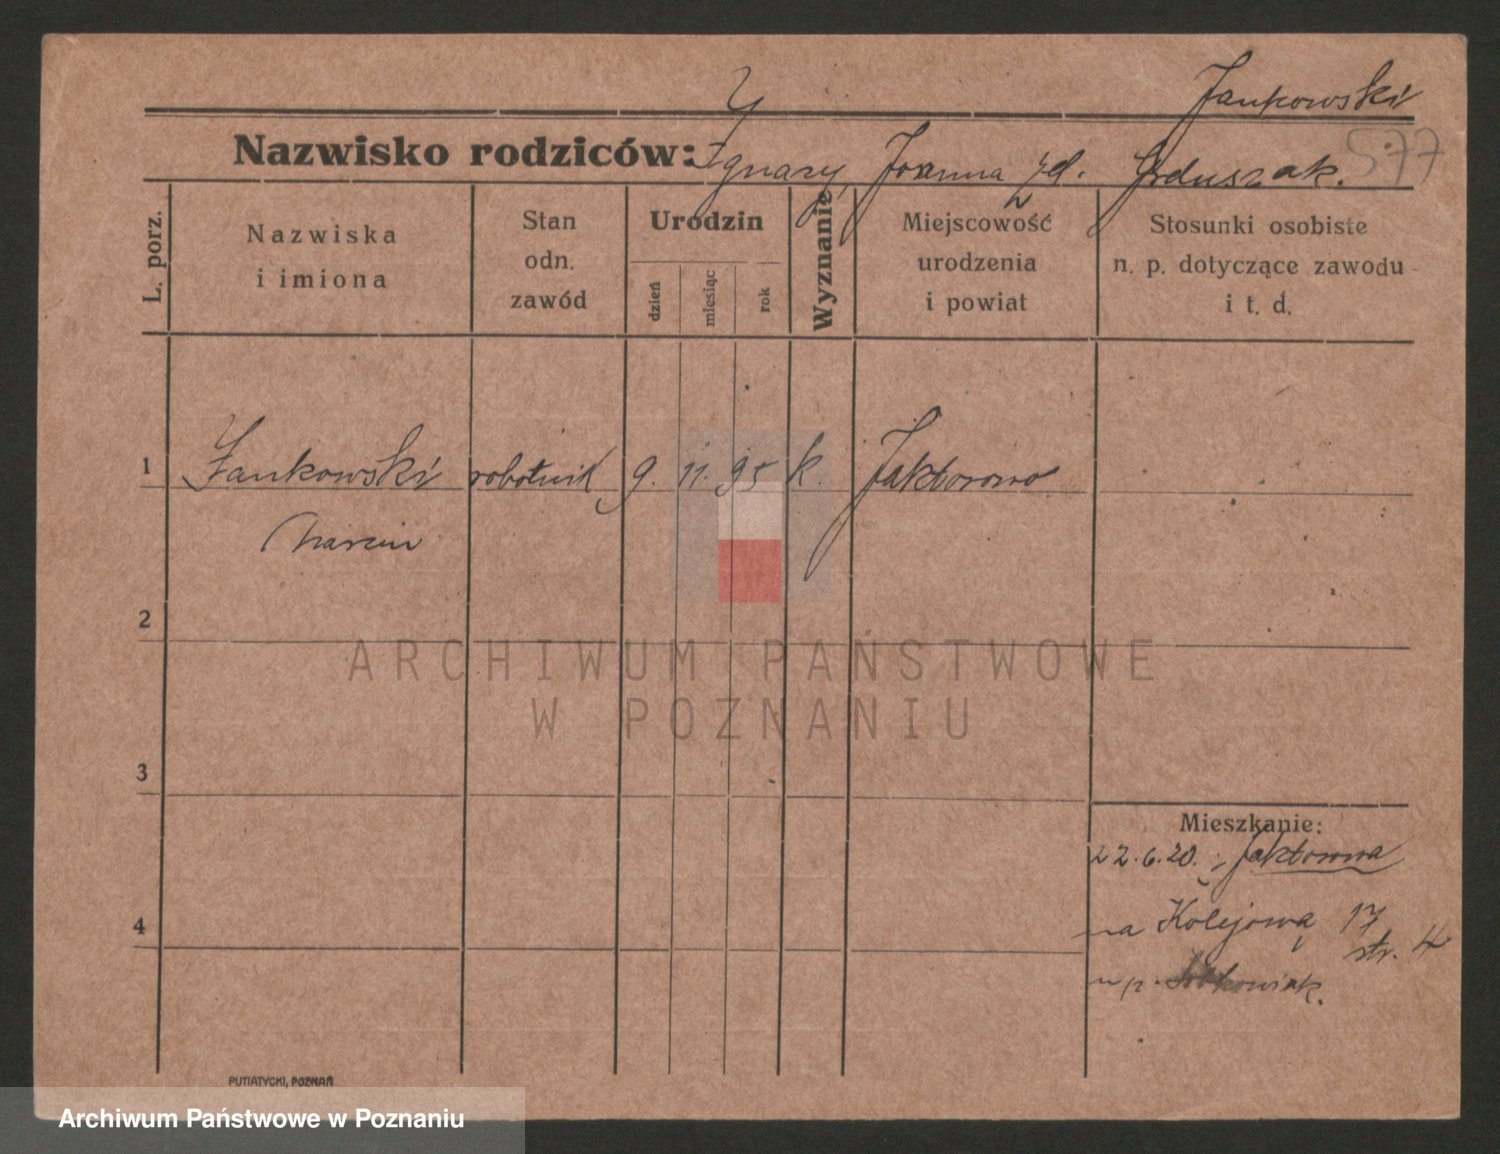 Jankowski
577
Nazwisko rodziców: Ignacy, Joanna zd. Grduszak.
L. porz.
Nazwiska
i imiona
Stan
odn.
zawód
Urodzin
dzień
miesiąc
rok
Wyznanie
Miejscowość
urodzenia
i powiat
Stosunki osobiste
n. p. dotyczące zawodu
i t. d.
1 Jankowski robotnik 9. 11. 95 k. Jaktorowo
Marcin
2
3
4
Mieszkanie:
22.6.20. z Jaktorowa
na Kolejową 17
str. 4
u p.
PUTIATYCKI, POZNAŃ
ARCHIWUM PAŃSTWOWE
W POZNANIU
Archiwum Państwowe w Poznaniu